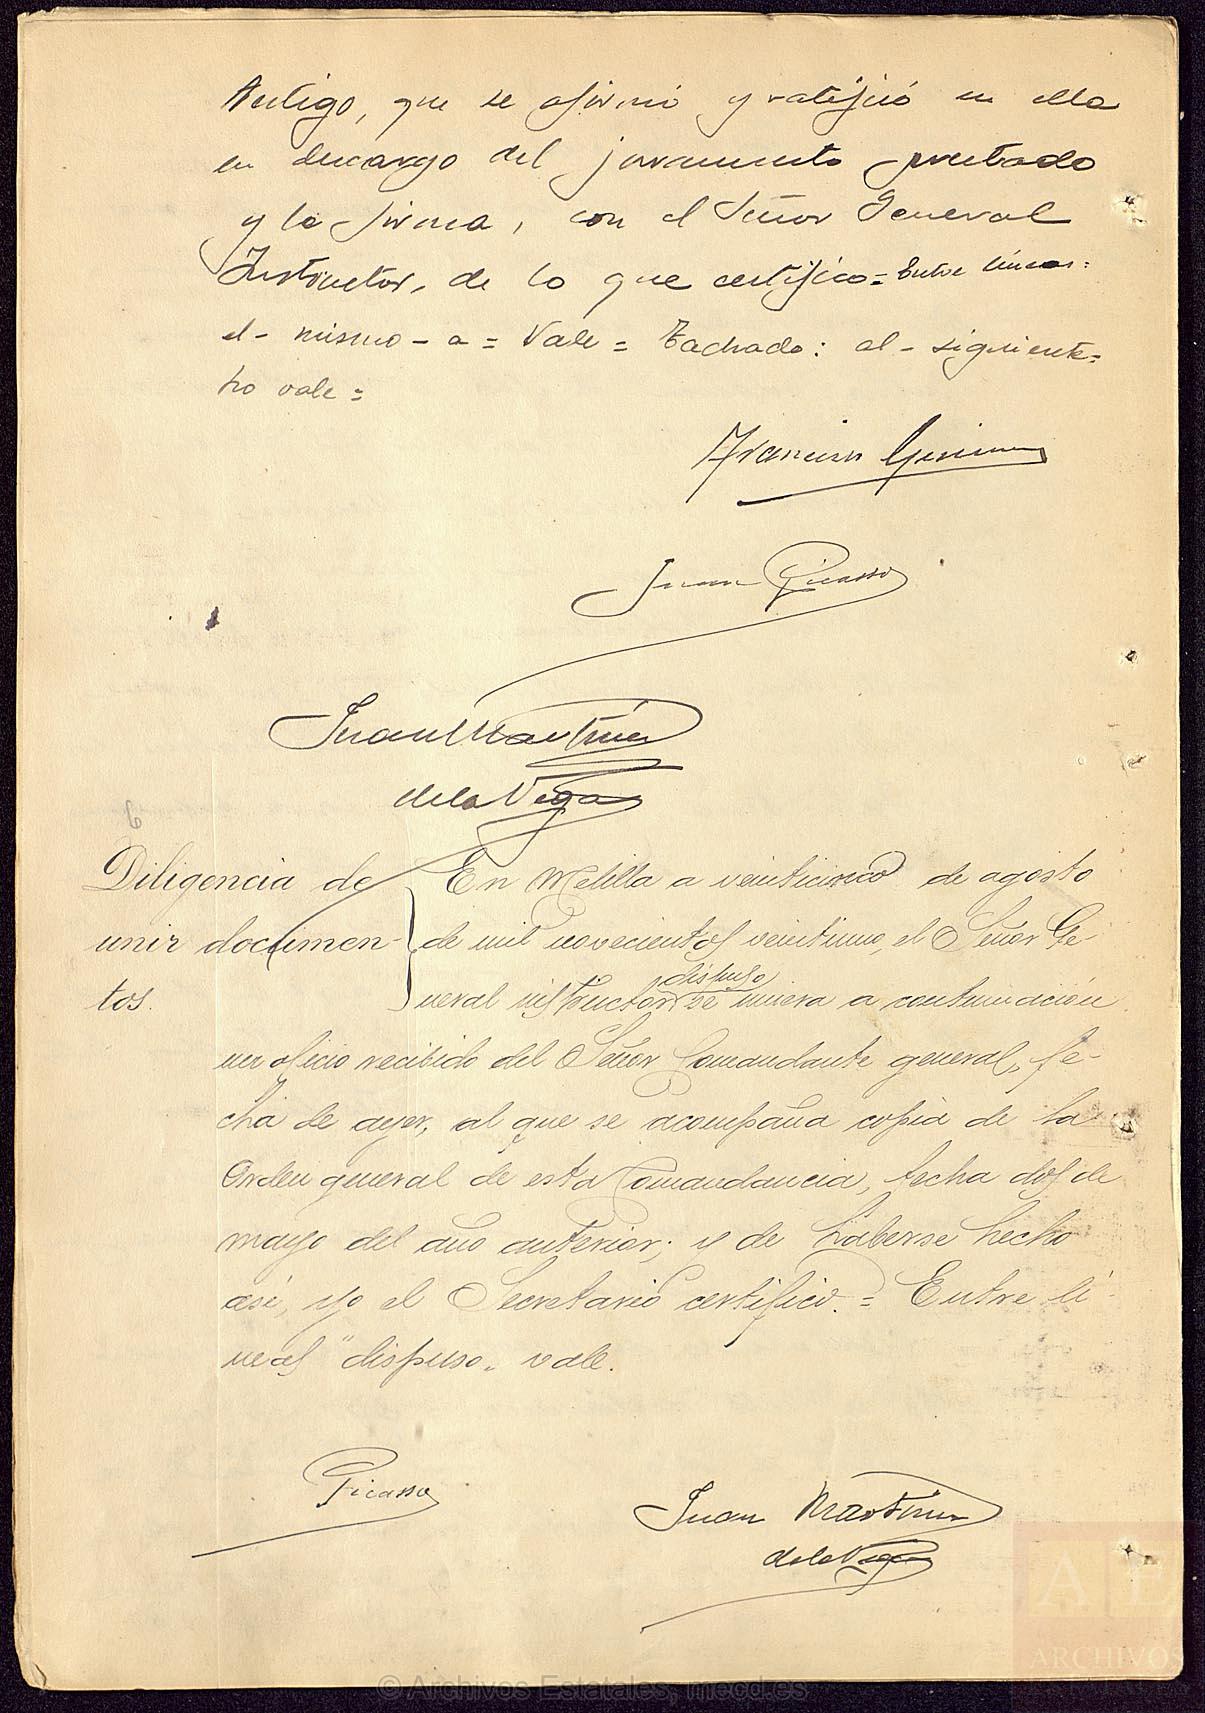 testigo, que se afirmó y ratificó en ella
en descargo del juramento prestado
y la firma, con el Señor General
Instructor, de lo que certifico = Entre líneas:
el - mismo - a = Vale = Tachado: al - siguiente =
no vale =
Francisco
Juan Picasso
Juan Martínez
de la Vega
Diligencia de
unir documen-
tos.
En Melilla a veinticinco de agosto
de mil novecientos veintiuno, el Señor Ge-
dispuso
neral instructor se uniera a continuación
un oficio recibido del Señor Comandante general, fe-
cha de ayer, al que se acompaña copia de la
Orden general de esta Comandancia, fecha dos de
mayo del año anterior; y de haberse hecho
así, yo el Secretario certifico. = Entre lí-
neas "dispuso" vale.
Picasso
Juan Martínez
de la Vega
AE
ARCHIVOS
ESTATALES
© Archivos Estatales, mecd.es